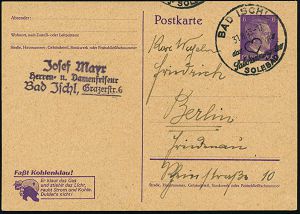 Absender:
Wohnort, auch Zustell- oder Leitpostamt
Straße, Hausnummer, Gebäudeteil, Stockwerk oder Postschließfachnummer
Postkarte
BAD ISCHL
SOLEBAD
6
Josef Mayr
Herren- u. Damenfriseur
Bad Ischl, Grazerstr. 6
Friedrich
Berlin
Friedenau
10
Straße, Hausnummer, Gebäudeteil, Stockwerk oder Postschließfachnummer
Faßt Kohlenklau!
Er klaut das Gas
und stiehlt das Licht,
raubt Strom und Kohle
Duldet's nicht!